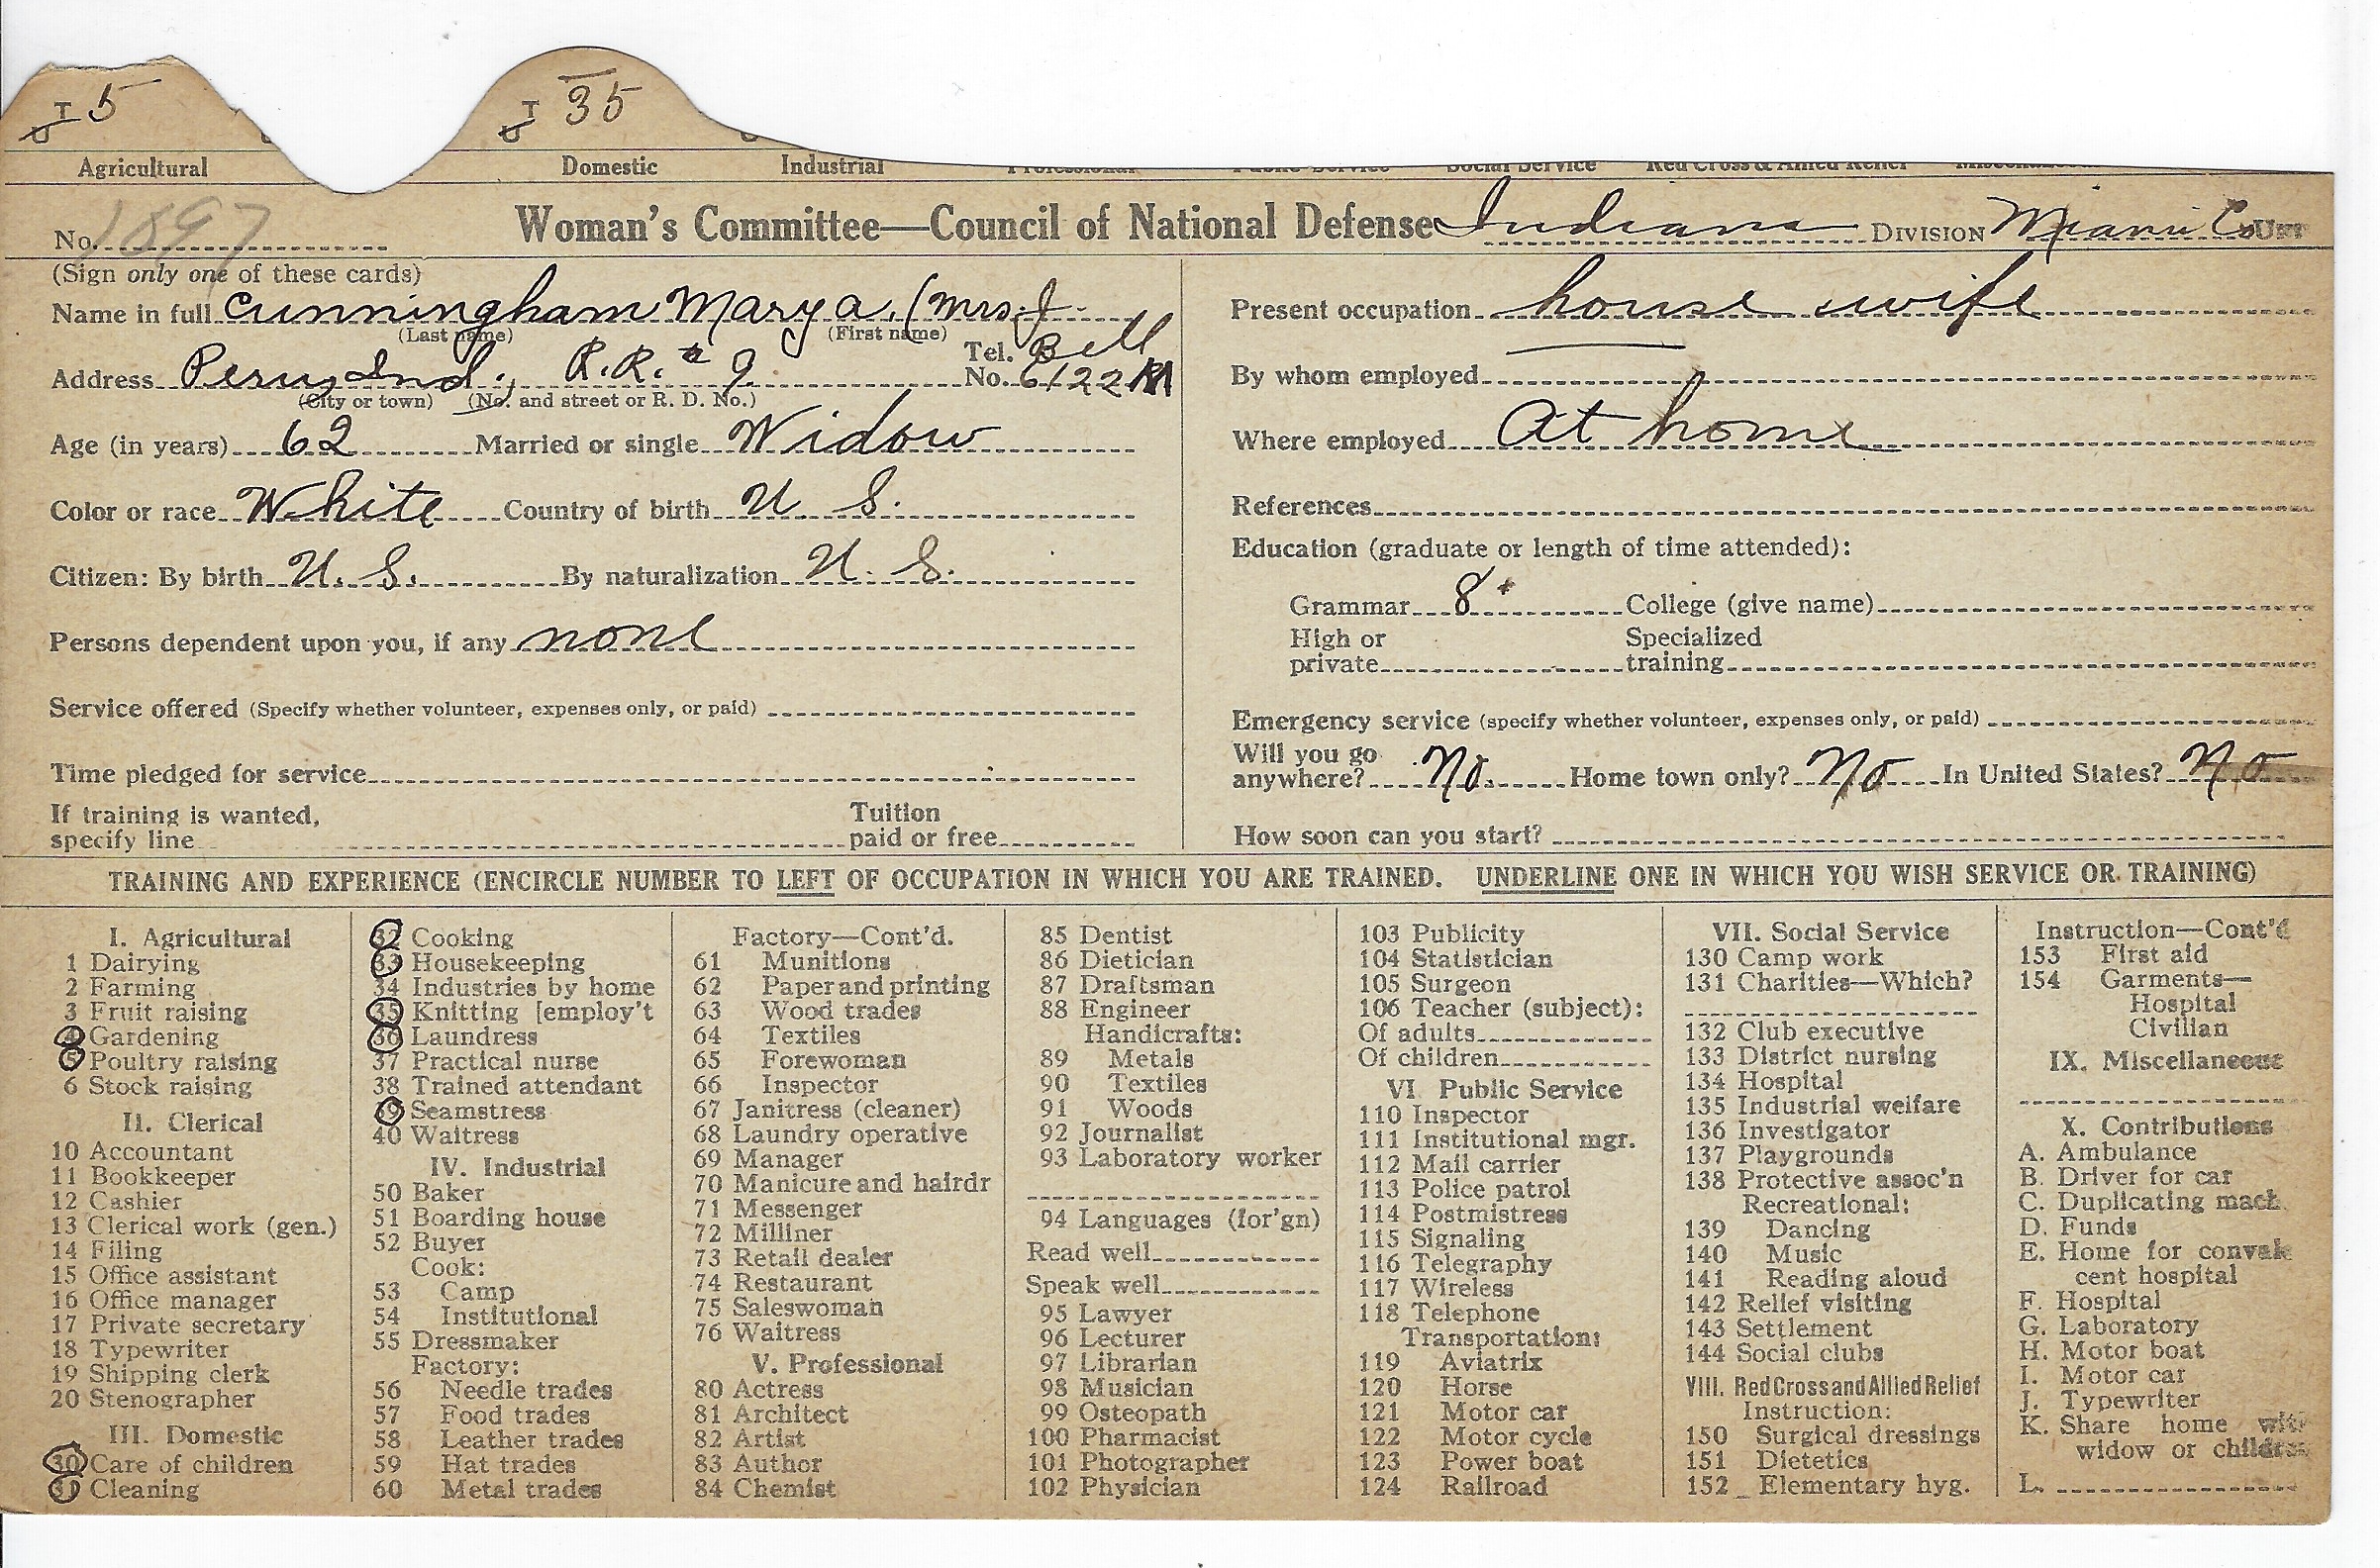 T 5
U
T 35
U
Agricultural Domestic Industrial Professional Public Service Social Service Red Cross & Allied Relief
No. 1897
Woman's Committee—Council of National Defense Indiana DIVISION Miami Co. UNIT
(Sign only one of these cards)
Name in full Cunningham Mary a. (Mrs.)
(Last name) (First name)
Address Peru, Ind., R.R. # 9 Tel. No. Bell 6122 M
(City or town) (No. and street or R. D. No.)
Age (in years) 62 Married or single Widow
Color or race White Country of birth U. S.
Citizen: By birth U. S. By naturalization U. S.
Persons dependent upon you, if any none
Service offered (Specify whether volunteer, expenses only, or paid)
Time pledged for service
If training is wanted, specify line
Tuition paid or free
Present occupation house wife
By whom employed
Where employed At home
References
Education (graduate or length of time attended):
Grammar 8+ College (give name)
High or private
Specialized training
Emergency service (specify whether volunteer, expenses only, or paid)
Will you go anywhere? No. Home town only? No In United States? No
How soon can you start?
TRAINING AND EXPERIENCE (ENCIRCLE NUMBER TO LEFT OF OCCUPATION IN WHICH YOU ARE TRAINED. UNDERLINE ONE IN WHICH YOU WISH SERVICE OR TRAINING)
I. Agricultural
1 Dairying
2 Farming
3 Fruit raising
4 Gardening
5 Poultry raising
6 Stock raising
II. Clerical
10 Accountant
11 Bookkeeper
12 Cashier
13 Clerical work (gen.)
14 Filing
15 Office assistant
16 Office manager
17 Private secretary
18 Typewriter
19 Shipping clerk
20 Stenographer
III. Domestic
30 Care of children
31 Cleaning
32 Cooking
33 Housekeeping
34 Industries by home
35 Knitting [employ't
36 Laundress
37 Practical nurse
38 Trained attendant
39 Seamstress
40 Waitress
IV. Industrial
50 Baker
51 Boarding house
52 Buyer
Cook:
53 Camp
54 Institutional
55 Dressmaker
Factory:
56 Needle trades
57 Food trades
58 Leather trades
59 Hat trades
60 Metal trades
Factory—Cont'd.
61 Munitions
62 Paper and printing
63 Wood trades
64 Textiles
65 Forewoman
66 Inspector
67 Janitress (cleaner)
68 Laundry operative
69 Manager
70 Manicure and hairdr
71 Messenger
72 Milliner
73 Retail dealer
74 Restaurant
75 Saleswoman
76 Waitress
V. Professional
80 Actress
81 Architect
82 Artist
83 Author
84 Chemist
85 Dentist
86 Dietician
87 Draftsman
88 Engineer
Handicrafts:
89 Metals
90 Textiles
91 Woods
92 Journalist
93 Laboratory worker
94 Languages (for'gn)
Read well
Speak well
95 Lawyer
96 Lecturer
97 Librarian
98 Musician
99 Osteopath
100 Pharmacist
101 Photographer
102 Physician
103 Publicity
104 Statistician
105 Surgeon
106 Teacher (subject):
Of adults
Of children
VI Public Service
110 Inspector
111 Institutional mgr.
112 Mail carrier
113 Police patrol
114 Postmistress
115 Signaling
116 Telegraphy
117 Wireless
118 Telephone
Transportation:
119 Aviatrix
120 Horse
121 Motor car
122 Motor cycle
123 Power boat
124 Railroad
VII. Social Service
130 Camp work
131 Charities—Which?
132 Club executive
133 District nursing
134 Hospital
135 Industrial welfare
136 Investigator
137 Playgrounds
138 Protective assoc'n
Recreational:
139 Dancing
140 Music
141 Reading aloud
142 Relief visiting
143 Settlement
144 Social clubs
VIII. Red Cross and Allied Relief
Instruction:
150 Surgical dressings
151 Dietetics
152 Elementary hyg.
Instruction—Cont'd
153 First aid
154 Garments—
Hospital
Civilian
IX. Miscellaneous
X. Contributions
A. Ambulance
B. Driver for car
C. Duplicating mach.
D. Funds
E. Home for convales
cent hospital
F. Hospital
G. Laboratory
H. Motor boat
I. Motor car
J. Typewriter
K. Share home with
widow or children
L.